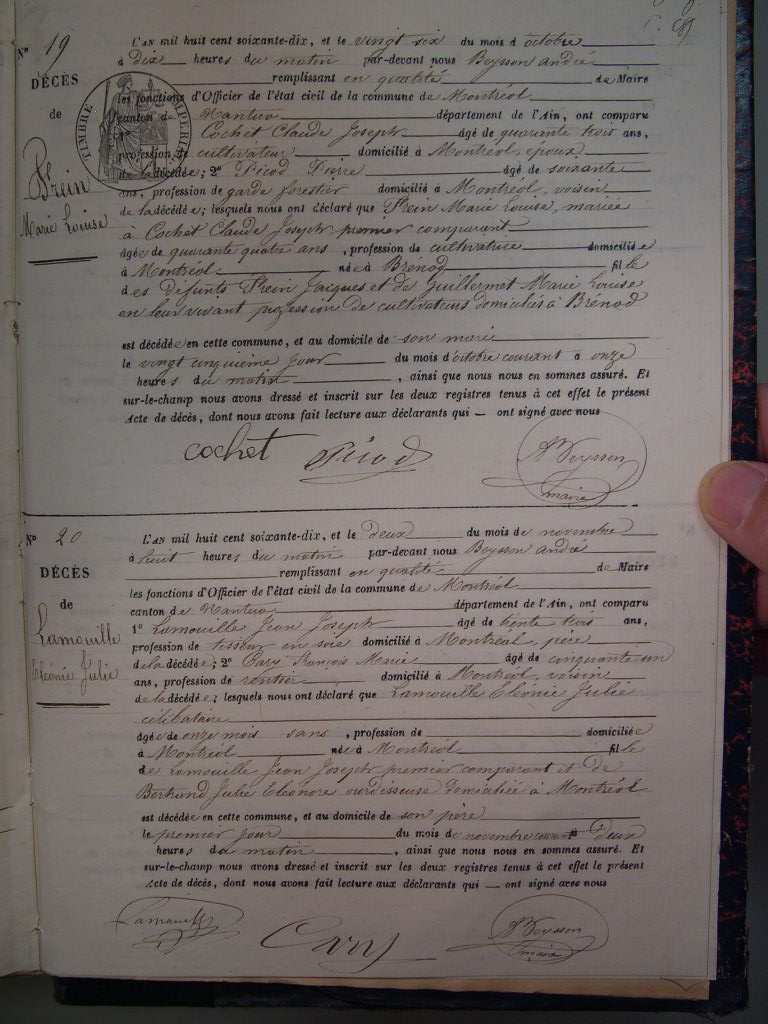 N° 19
DÉCÈS
de
Prein
Marie Louise
TIMBRE IMPÉRIAL
L'AN mil huit cent soixante-dix, et le vingt six du mois d'octobre
à Dix heures du matin par-devant nous Beysson andré
remplissant en qualité de Maire
les fonctions d'Officier de l'état civil de la commune de Montréal
canton de Nantua département de l'Ain, ont comparu
1° Cochet Claude Joseph âgé de quarante trois ans,
profession de cultivateur domicilié à Montréal, époux
de la décédée; 2° Picod Pierre âgé de soixante
ans, profession de garde forestier domicilié à Montréol, voisin
de la décédée; lesquels nous ont déclaré que Prein Marie Louise, mariée
à Cochet Claude Joseph premier comparant
âgée de quarante quatre ans, profession de cultivatrice domiciliée
à Montréol née à Brénod fille
des Défunts Prein Jacques et de Guillermet Marie Louise
en leur vivant profession de cultivateurs domiciliés à Brénod
est décédée en cette commune, et au domicile de son mari
le vingt cinquième jour du mois d'octobre courant à onze
heures du matin, ainsi que nous nous en sommes assuré. Et
sur-le-champ nous avons dressé et inscrit sur les deux registres tenus à cet effet le présent
Acte de décès, dont nous avons fait lecture aux déclarants qui — ont signé avec nous
cochet Picod ABeysson
maire
N° 20
DÉCÈS
de
Lamouille
Eléonie Julie
L'AN mil huit cent soixante-dix, et le Deux du mois de novembre
à huit heures du matin par-devant nous Beysson andré
remplissant en qualité de Maire
les fonctions d'Officier de l'état civil de la commune de Montréol
canton de Nantua département de l'Ain, ont comparu
1° Lamouille Jean Joseph âgé de trente trois ans,
profession de tisseur en soie domicilié à Montréal, père
de la décédée; 2° Cary François Marie âgé de cinquante un
ans, profession de rentier domicilié à Montréol, voisin
de la décédée; lesquels nous ont déclaré que Lamouille Eléonie Julie
célibataire
âgée de onze mois sans, profession de domiciliée
à Montréol née à Montréol fille
de Lamouille Jean Joseph premier comparant et de
Bertrand Julie Eléonore ourdisseuse domiciliée à Montréol
est décédée en cette commune, et au domicile de son père
le premier jour du mois de novembre courant à Deux
heures du matin, ainsi que nous nous en sommes assuré. Et
sur-le-champ nous avons dressé et inscrit sur les deux registres tenus à cet effet le présent
Acte de décès, dont nous avons fait lecture aux déclarants qui — ont signé avec nous
Lamouille Cary ABeysson
maire